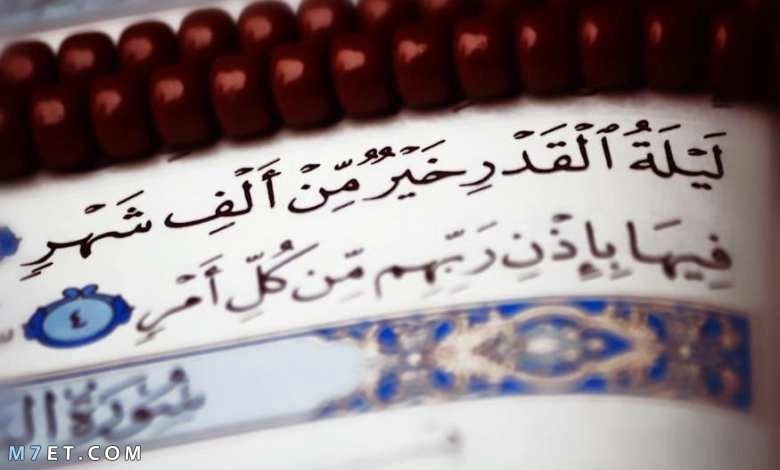 لَيْلَةُ ٱلْقَدْرِ خَيْرٌ مِّنْ أَلْفِ شَهْرٍ
فِيهَا بِإِذْنِ رَبِّهِم مِّن كُلِّ أَمْرٍ ٤
سُورَةُ
M7ET.COM